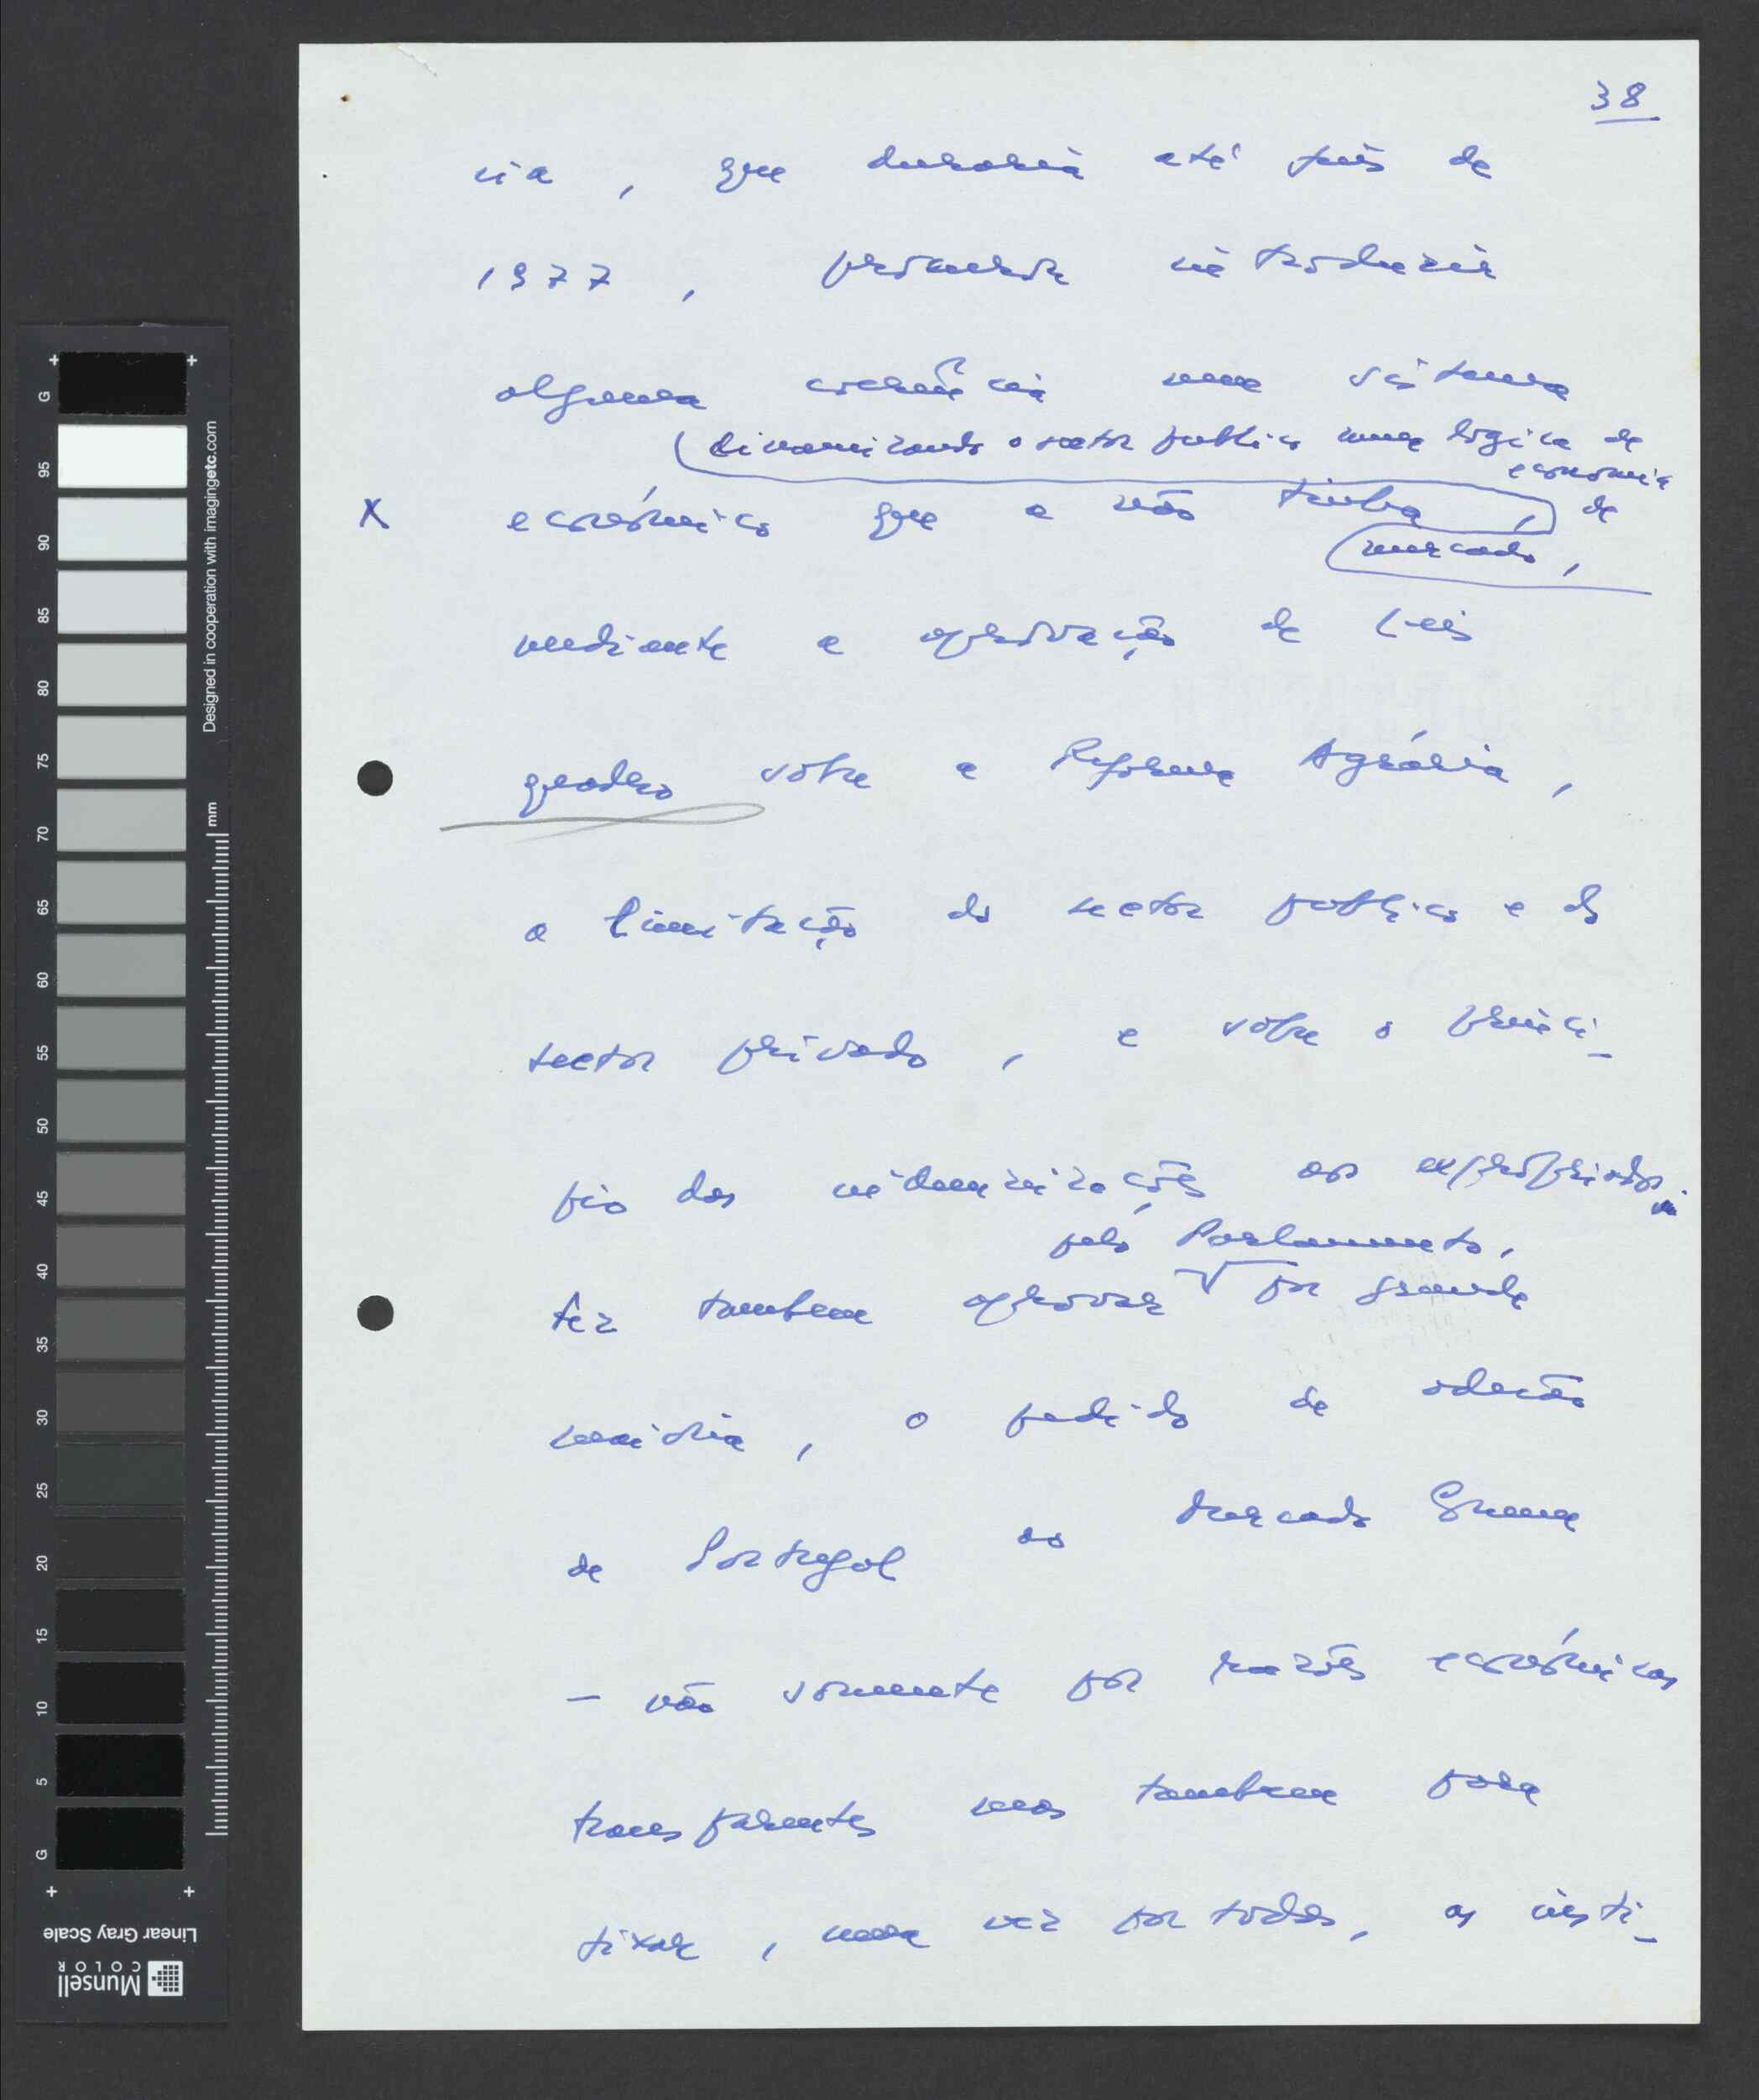 38
ria, que duraria até fins de
1977, procurou introduzir
alguma coerência num sistema
dinamizando o sector publico numa lógica de
economia
X económico que a não tinha, de
mercado,
mediante a aprovação de Leis
quadro sobre a Reforma Agrária,
a limitação do sector publico e do
sector privado, e sobre o princi-
pio das indemnizações aos expropriados.
pelo Parlamento,
Fez tambem aprovar por grande
maioria, o pedido de adesão
de Portugal ao Mercado Comum
– não somente por razões económicas
transparentes mas tambem para
fixar, uma vez por todas, as insti-
G
95
90
85
80
75
70
65
60
55
50
45
40
35
30
25
20
15
10
5
G
Designed in cooperation with imagingetc.com
mm
Linear Gray Scale
Munsell
COLOR